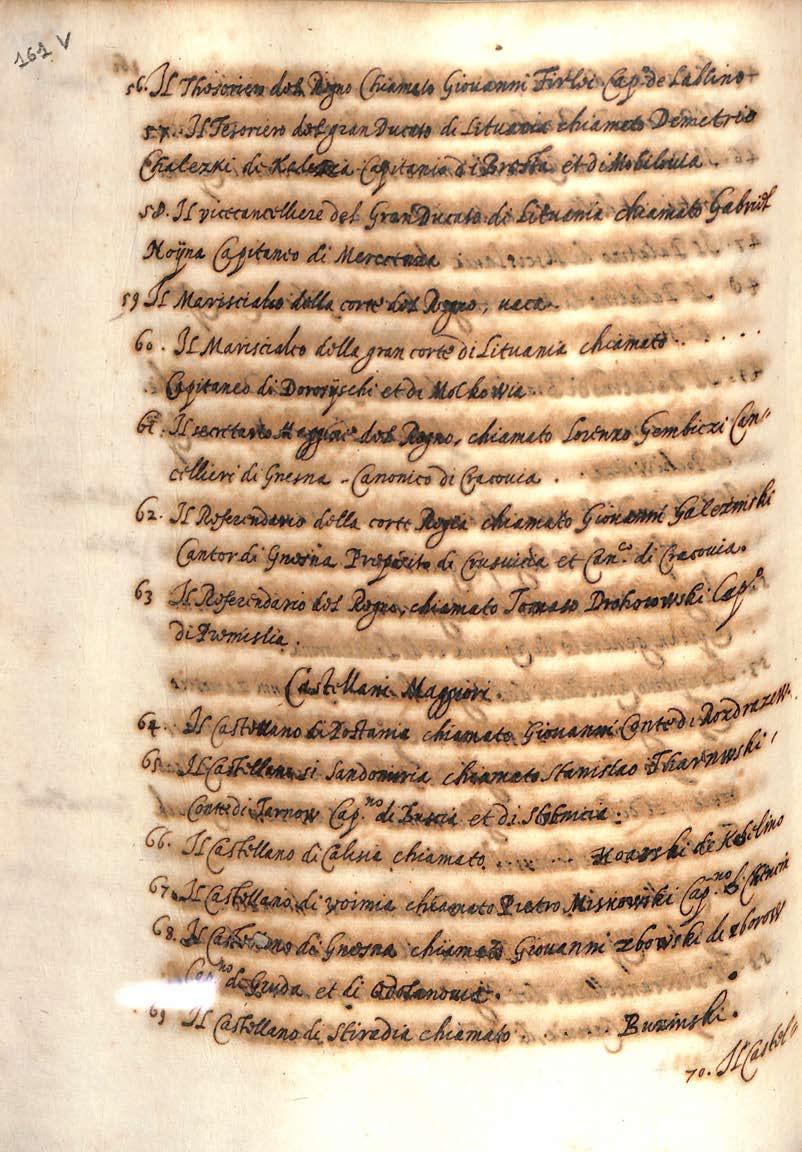 161 V
56. Il Thesoriero del Regno Chiamato Giovanni Firlei Cap.º de Lublino
57. Il Tesoriero del gran Ducato di Lituania chiamato Demetrio
Chalezki de Capitanio di Bresta et di Mobilouia.
58. Il vicecancelliere del Gran Ducato di Lituania chiamato Gabriel
Hoÿna Capitaneo di
59 Il Marisciallo della corte del Regno, uaca
60. Il Marisciallo della gran corte di Lituania chiamato . . . . . .
Capitaneo di Dorosÿschi et di Molkowia
61. Il secretario Maggiore del Regno, chiamato Lorenzo Gembiczi Can"
cellieri di Gnesna - Canonico di Cracouia .
62. Il Referendario della corte Regia chiamato Giovanni Galezinski
Cantor di Gnesna Preposito di Crusuicia et Can.co di Cracouia.
63 Il Referendario del Regno, chiamato Tomaso Drohoiowski Cap.º
di Premislia.
Castellani Maggiori.
64. Il Castellano di Postania chiamato Giovanni Conte di Rozdrazew.
65. Il Castellano si Sandomiria chiamato Stanislao Tharnwski
Conte di Tarnow Cap.no di Buscia et di Stobnicia.
66. Il Castellano di Calisia chiamato . . . . . de Kobelino
67. Il Castellano di voinia chiamato Pietro Miskowski Cap.no d.
68. Il Castellano di Gnesna chiamato Giovanni zbowski di zborow
Cap.no di Gruda et di Odolanouia.
69 Il Castellano di Stiradia chiamato . . . . . Buzinski.
70. Il Castel"